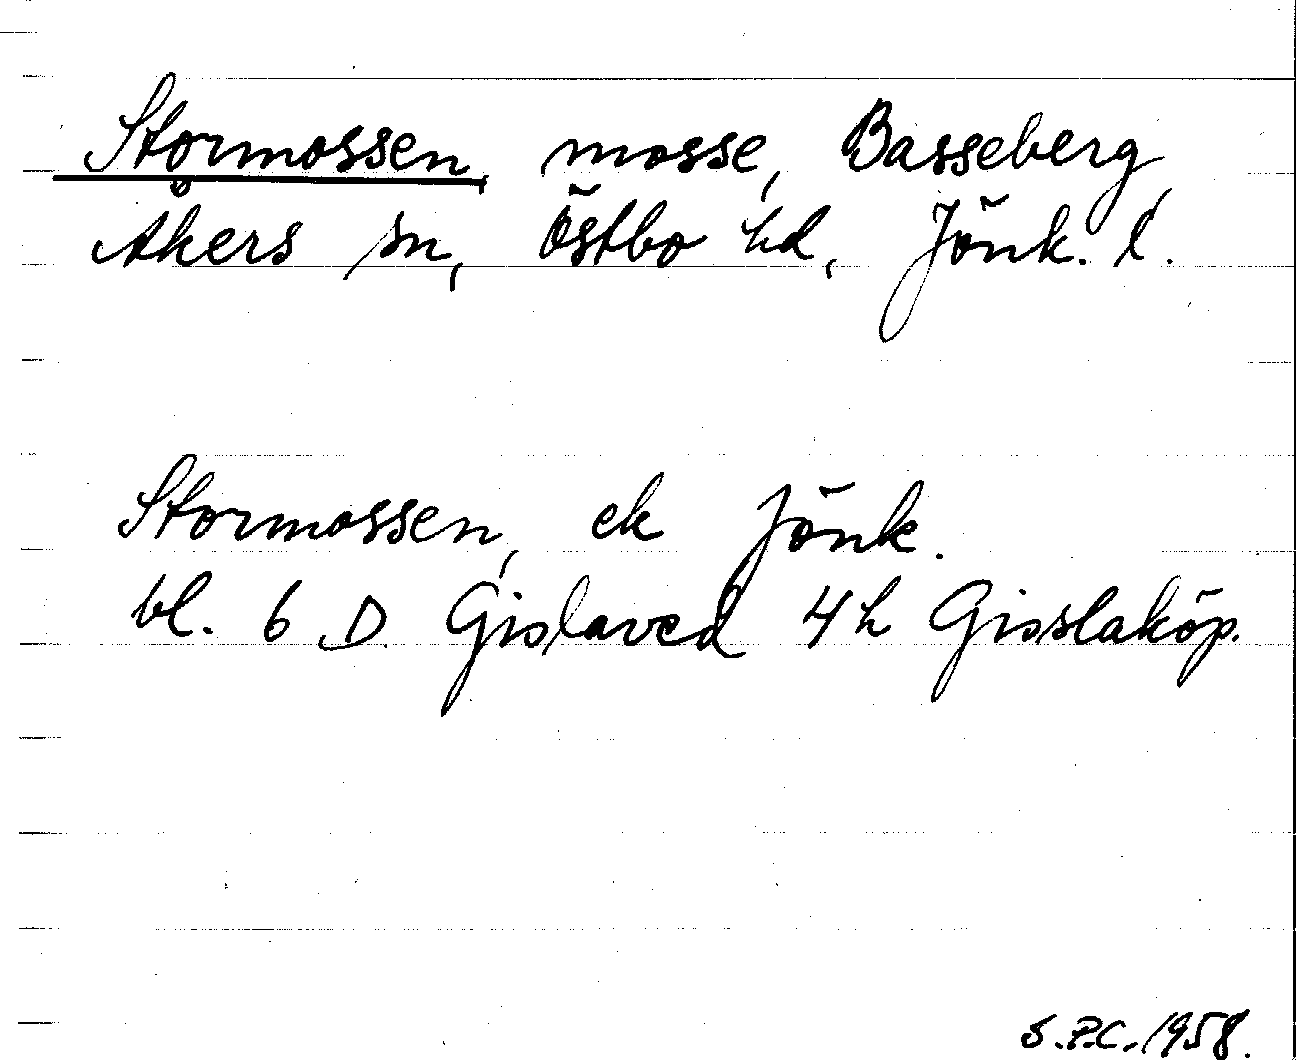 Stormossen, mosse, Basseberg,
Åkers sn, Östbo hd, Jönk. l.
Stormossen, ek Jönk.
bl. 6 D Gislaved 4h Gisslaköp.
S.P.C. 1958.